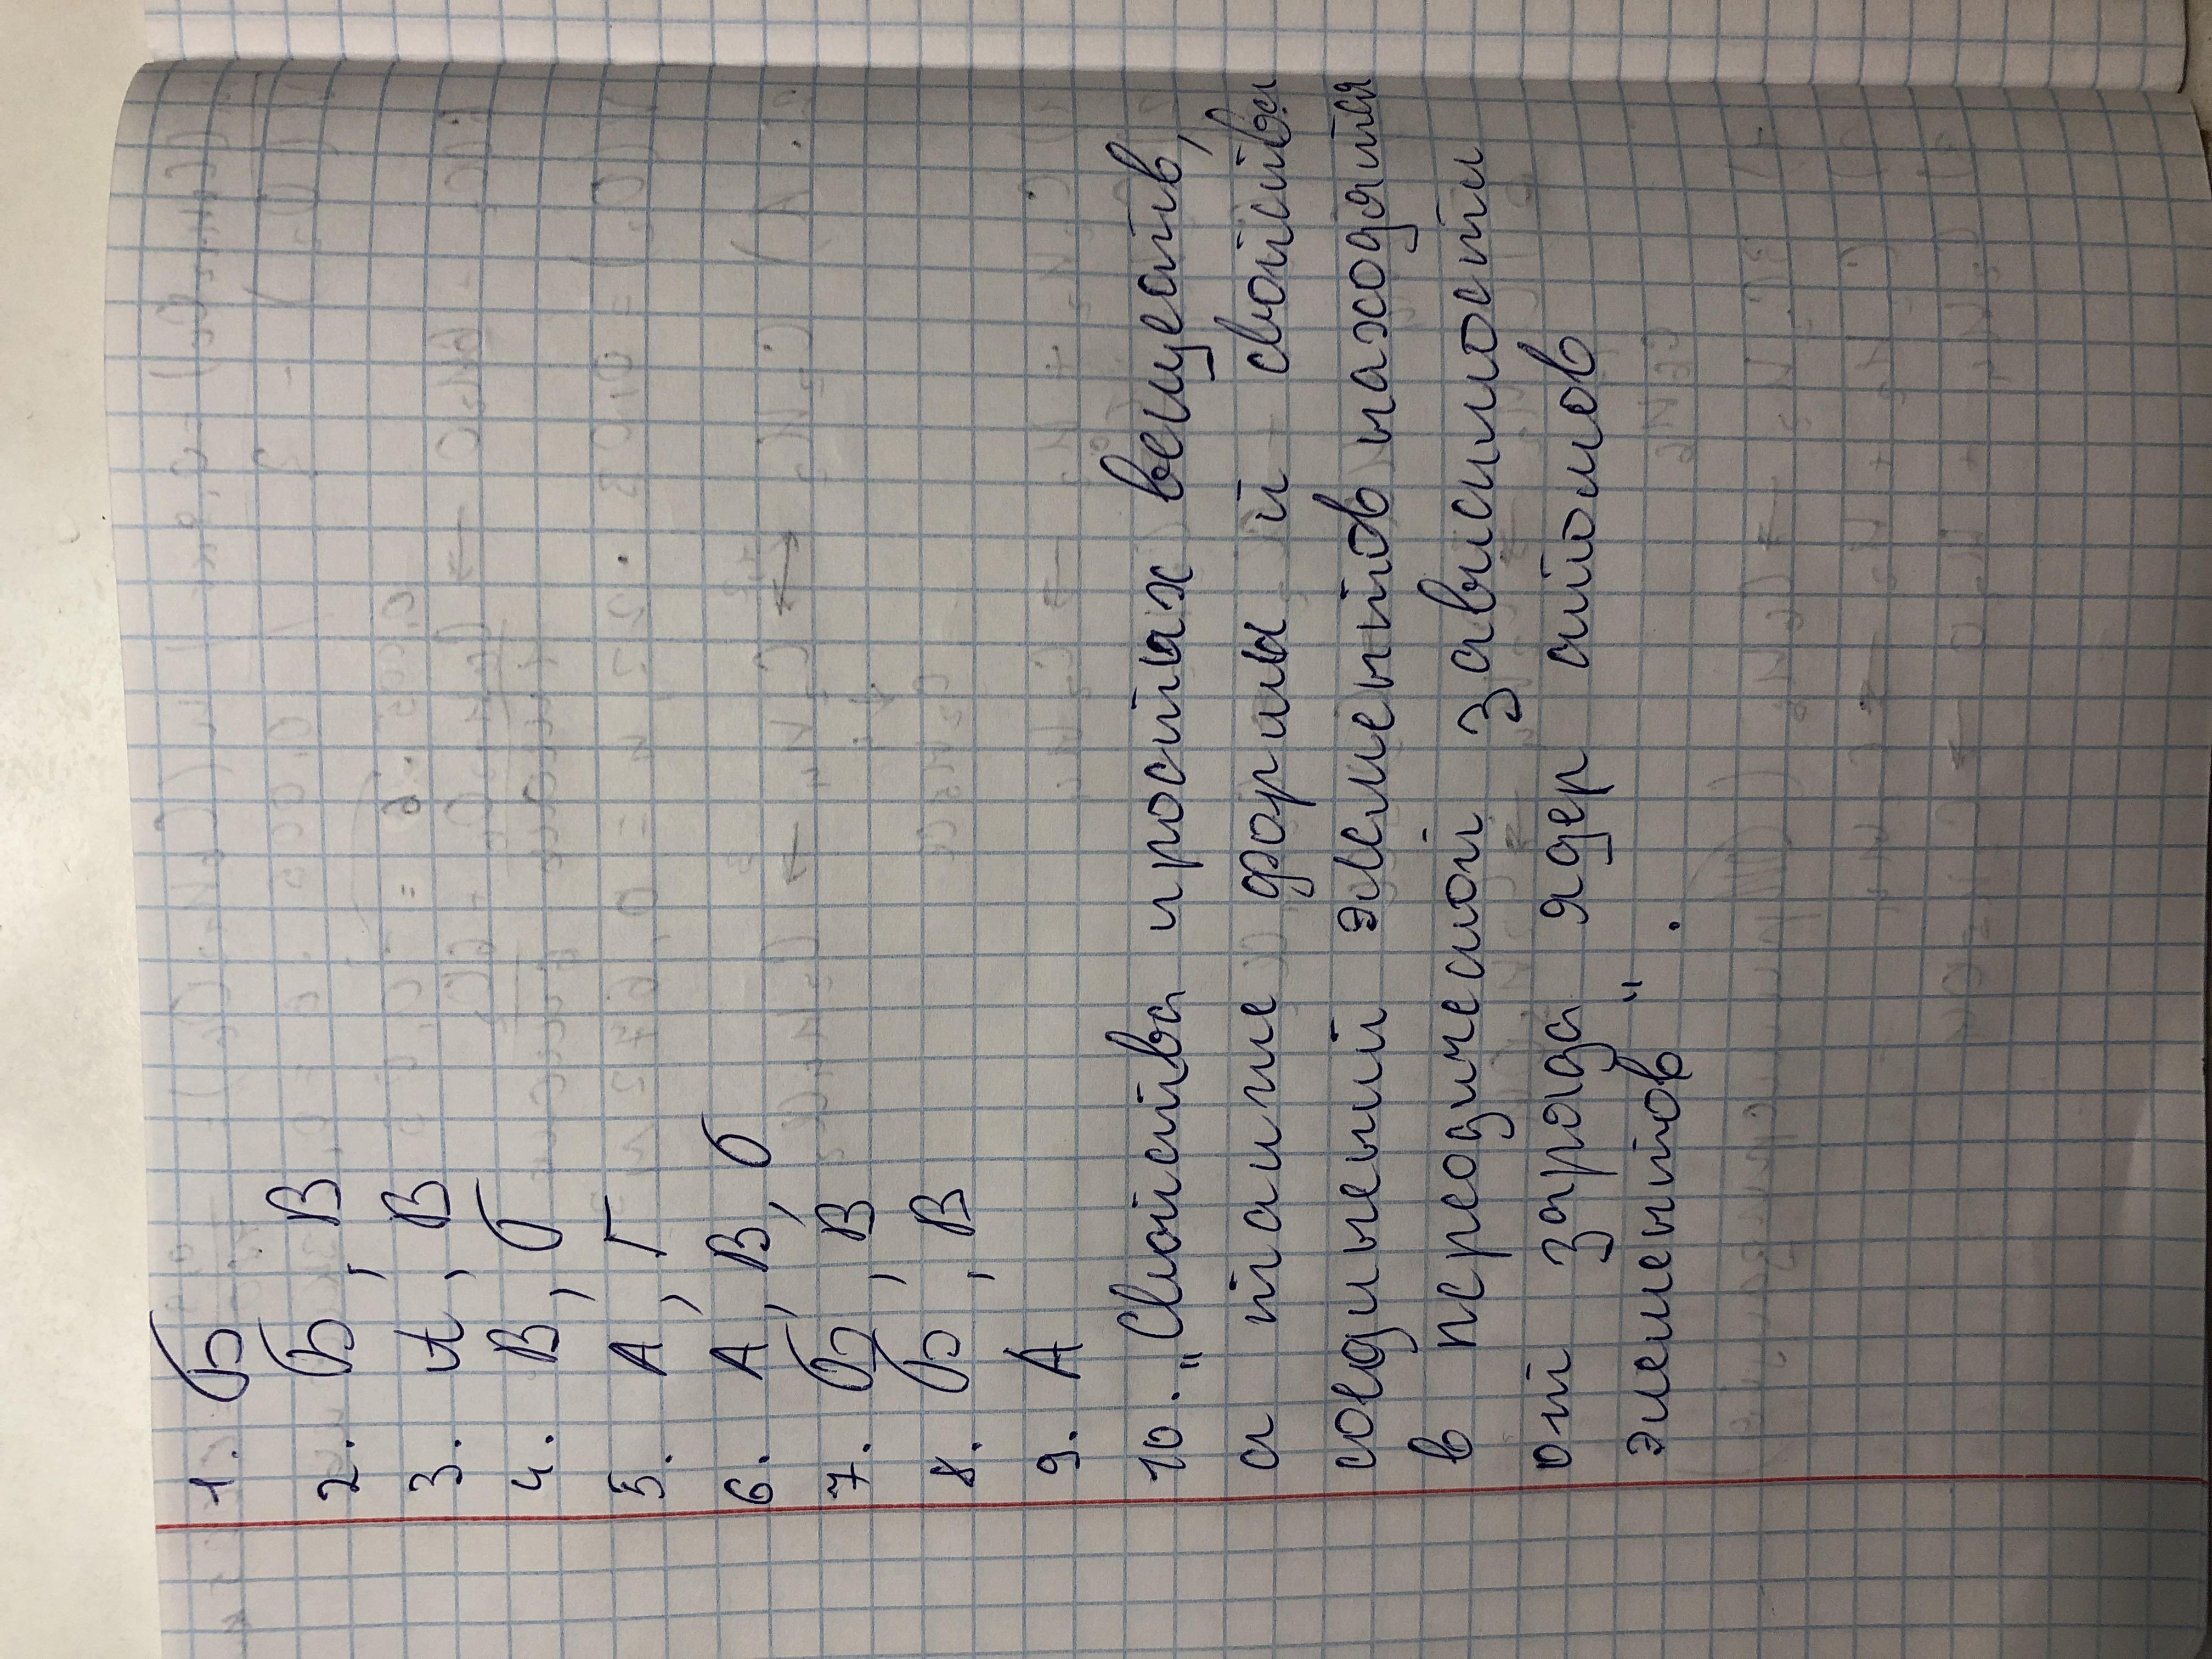 1. Б
2. Б, В
3. А, В
4. В, б
5. А, Г
6. А, В, б
7. Б, В
8. Б, В
9. А
10. „Свойства простых веществ,
а также формы и свойства
соединений элементов находятся
в периодической зависимости
от заряда ядер атомов
элементов".